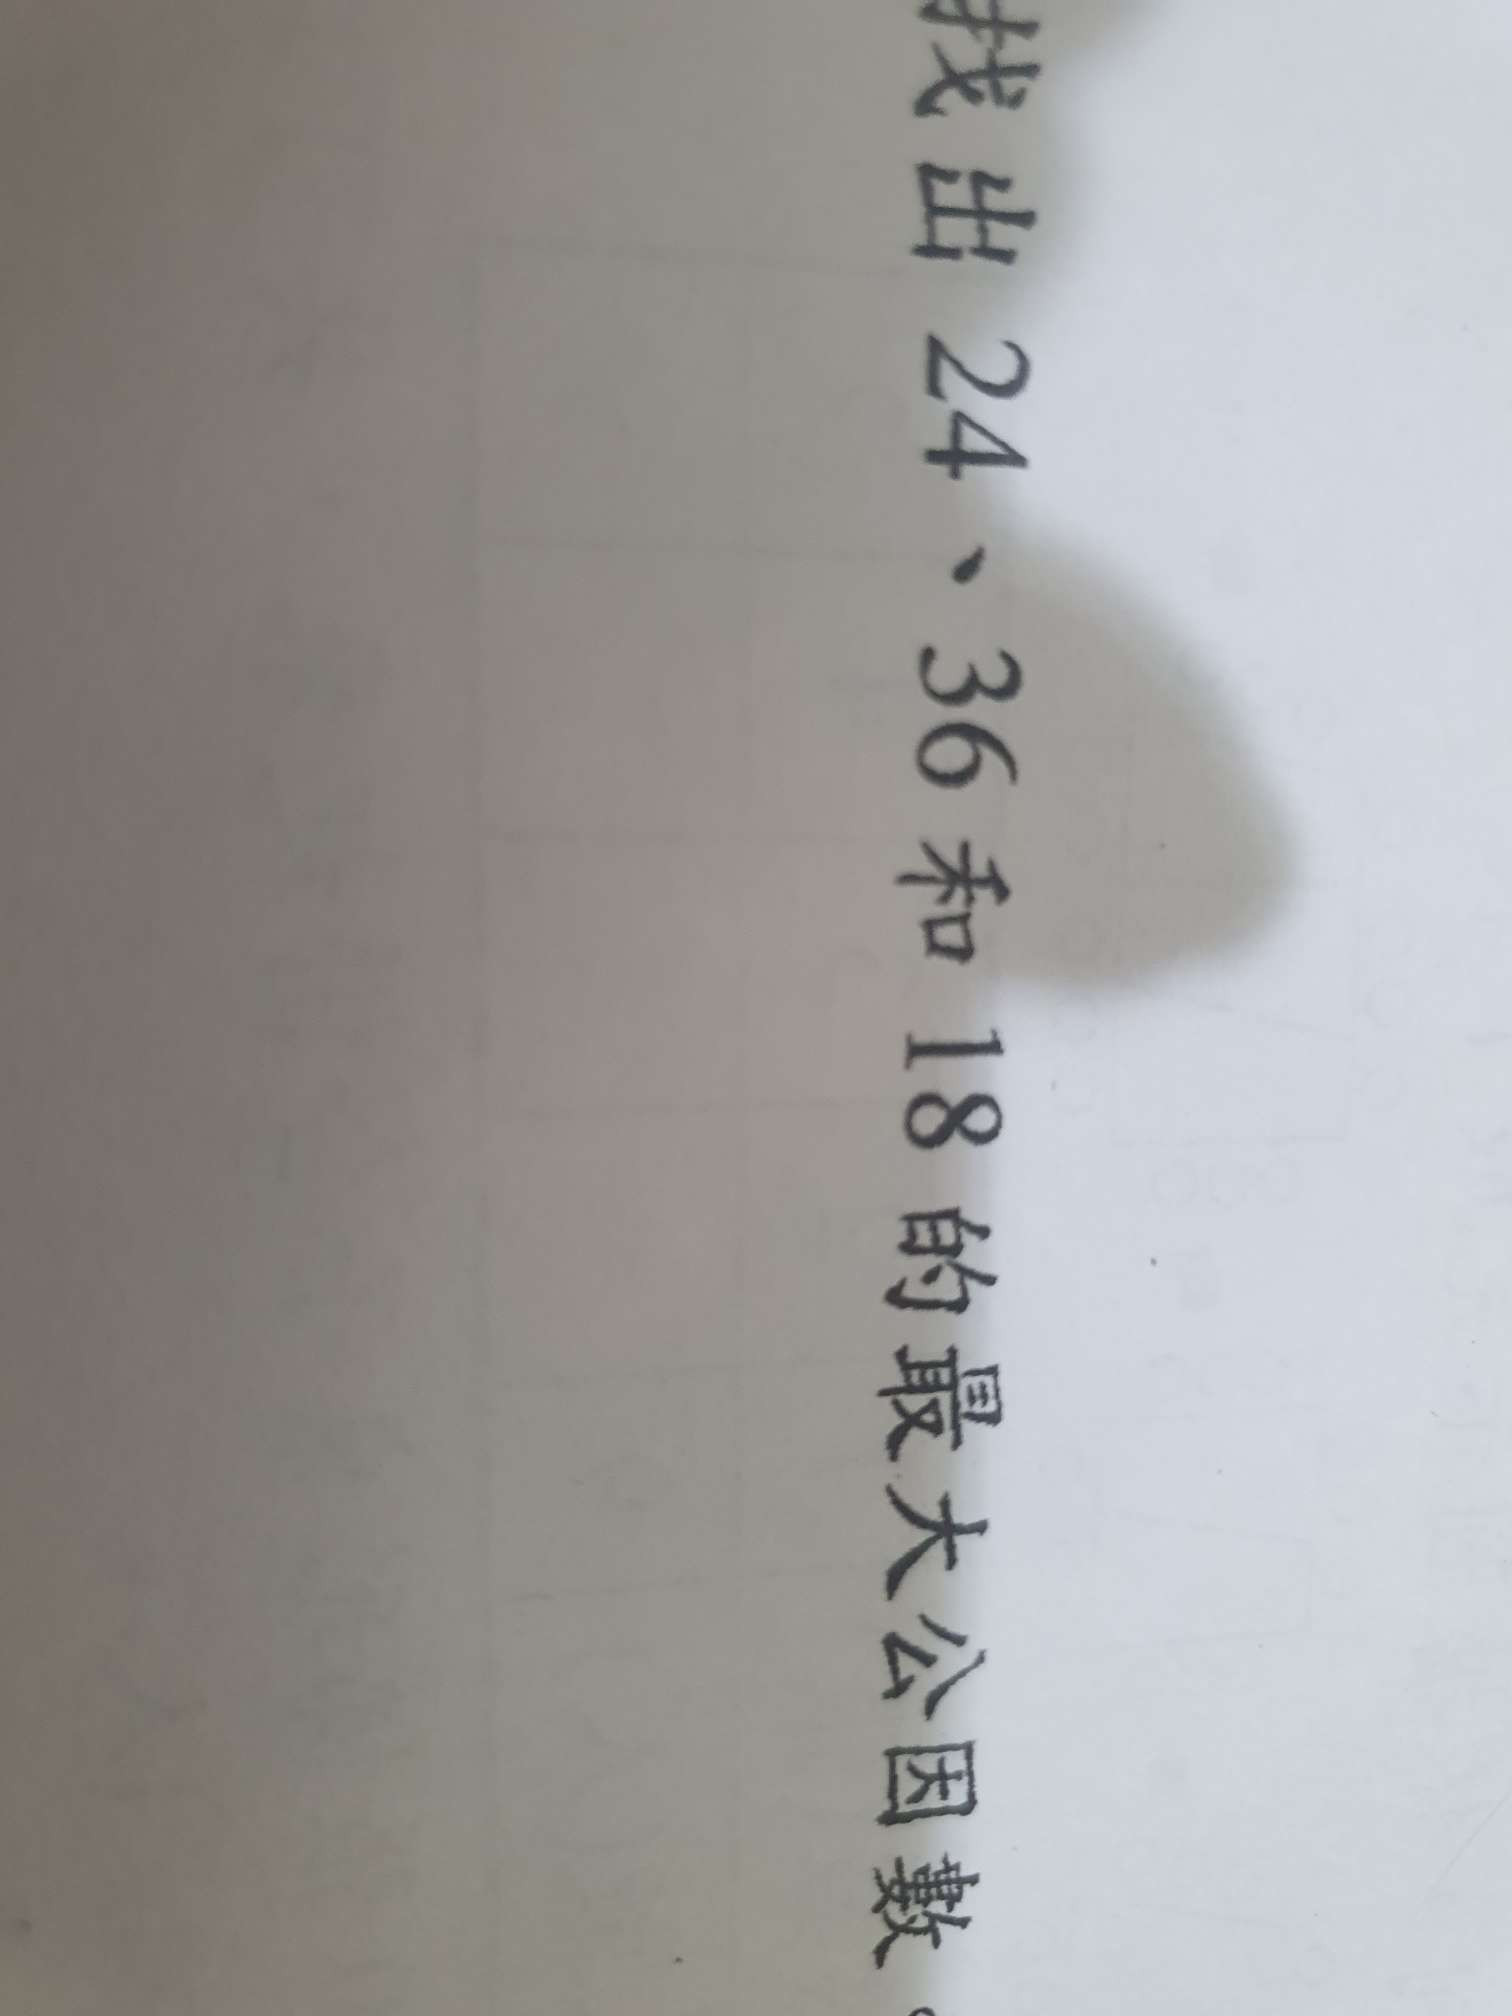 找出 24、36 和 18 的最大公因數。